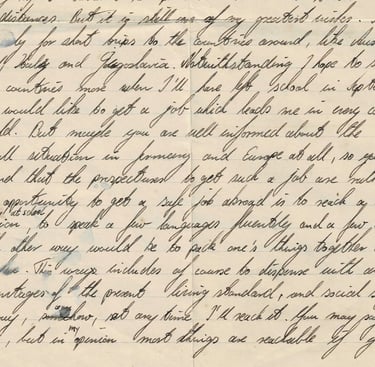 distances. But it is still one of my greatest wishes.
ly for short trips to the countries around, like Aus
Italy and Yugoslavia. Notwithstanding, hope to s
countries more when I'll have left school in
would like to get a job which leads me in every co
ld. But maybe you are well informed about the
ll situation in Germany and Europe at all, so
nd that the prospectives to get such a job are rath
opportunity to get a safe job abroad is to reach a
at school
ion, to speak a few languages fluently and a few
other way would be to pack one's things together
. This way includes of course to dispense with
ntages of the present living standard, and social s
any
my, somehow, at any time I'll reach it. You may
my
, but in opinion most things are reachable if